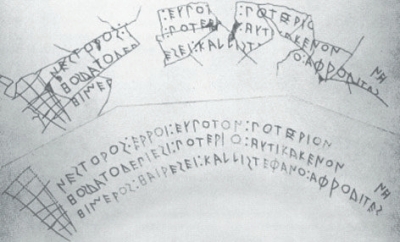 ΝΕΣΤΟΡΟΣ: :ΕΥΠΟΤ :ΠΟΤΕΡΙΟ
ΗΟΣΔΑΤΟΔΕΠ :ΠΟΤΕΡΙ :ΑΥΤΙ ΑΚΕΝΟΝ
ΗΙΜΕΡ ΕΣΕΙ:ΚΑΛΛΙΣΤ Ο:ΑΦΡΟΔΙΤΕΣ
ΝΕΣΤΟΡΟΣ:ΕΡΡΟΙ:ΕΥΠΟΤΟΝ:ΠΟΤΕΡΙΟΝ
ΗΟΣΔΑΤΟΔΕΠΙΕΣΙ:ΠΟΤΕΡΙΟ:ΑΥΤΙΚΑΚΕΝΟΝ
ΗΙΜΕΡΟΣ:ΗΑΙΡΕΣΕΙ:ΚΑΛΛΙΣΤΕΦΑΝΟ:ΑΦΡΟΔΙΤΕΣ